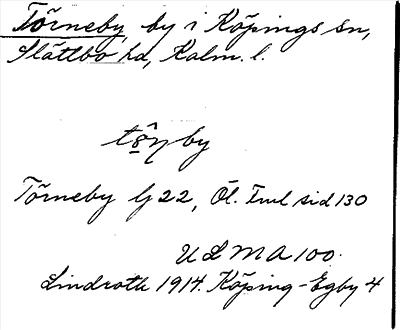 Törneby, by i Köpings sn,
Slättbo hd, Kalm. l.
Törneby lj 22, Öl. Fml sid 130
ULMA 100.
Lindroth 1914. Köping-Egby 4